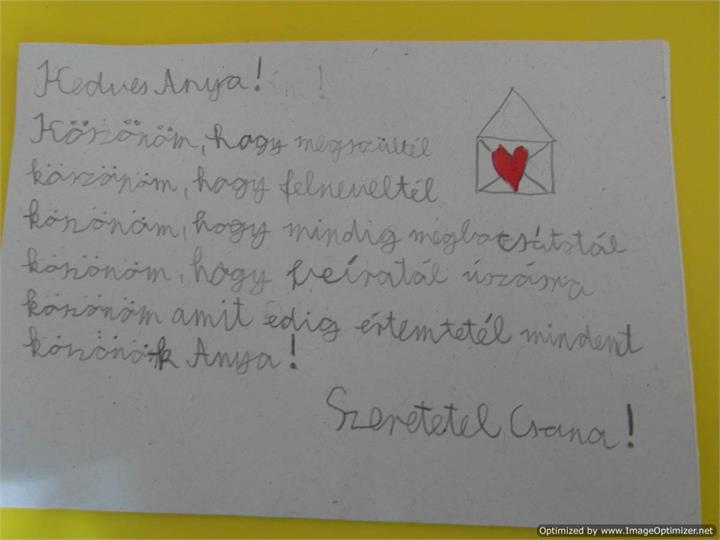 Kedves Anya!
Köszönöm, hogy megszültél
köszönöm, hogy felneveltél
köszönöm, hogy mindig megbocsátotál
köszönöm, hogy beíratál úszásra
köszönöm amit edig értemtetél mindent
köszönök Anya!
Szeretetel Csana!
Optimized by www.ImageOptimizer.net